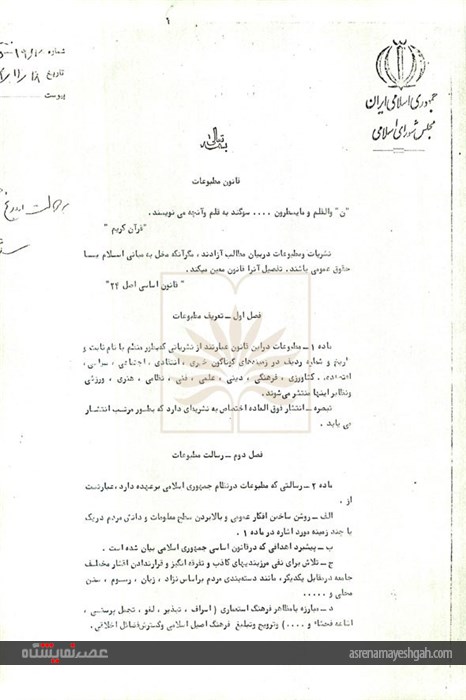 ۱
شماره
تاریخ
پیوست
جمهوری اسلامی ایران
مجلس شورای اسلامی
بسمه تعالی
قانون مطبوعات
"ن" والقلم و مایسطرون .... سوگند به قلم وآنچه می نویسند.
"قرآن کریم "
نشریات ومطبوعات دربیان مطالب آزادند ، مگرآنکه مخل به مبانی اسلام یا
حقوق عمومی باشند. تفصیل آنرا قانون معین میکند.
" قانون اساسی اصل ۲۴"
فصل اول ــ تعریف مطبوعات
ماده ۱ ــ مطبوعات دراین قانون عبارتند از نشریاتی که بطور منظم با نام ثابت و
تاریخ و شماره ردیف در زمینه‌های گوناگون خبری ، انتقادی ، اجتماعی ، سیاسی ،
اقتصادی ، کشاورزی ، فرهنگی ، دینی ، علمی ، فنی ، نظامی ، هنری ، ورزشی
ونظایر اینها منتشر می‌شوند.
تبصره ــ انتشار فوق العاده اختصاص به نشریه‌ای دارد که بطور مرتب انتشار
می یابد .
فصل دوم ــ رسالت مطبوعات
ماده ۲ ــ رسالتی که مطبوعات درنظام جمهوری اسلامی برعهده دارد ،عبارتست
از .
الف ــ روشن ساختن افکار عمومی و بالابردن سطح معلومات و دانش مردم دریک
یا چند زمینه مورد اشاره در ماده ۱ .
ب ــ پیشبرد اهدافی که درقانون اساسی جمهوری اسلامی بیان شده است .
ج ــ تلاش برای نفی مرزبندیهای کاذب و تفرقه انگیز و قرارندادن اقشار مختلف
جامعه درمقابل یکدیگر، مانند دسته‌بندی مردم براساس نژاد ، زبان ، رسوم ، سنن
محلی و .....
د ــ مبارزه بامظاهر فرهنگ استعماری ( اسراف ، تبذیر ، لغو ، تجمل پرستی ،
اشاعه فحشاء و ....) وترویج وتبلیغ فرهنگ اصیل اسلامی وگسترش فضائل اخلاقی.
عصر نمایشگاه
asrenamayeshgah.com